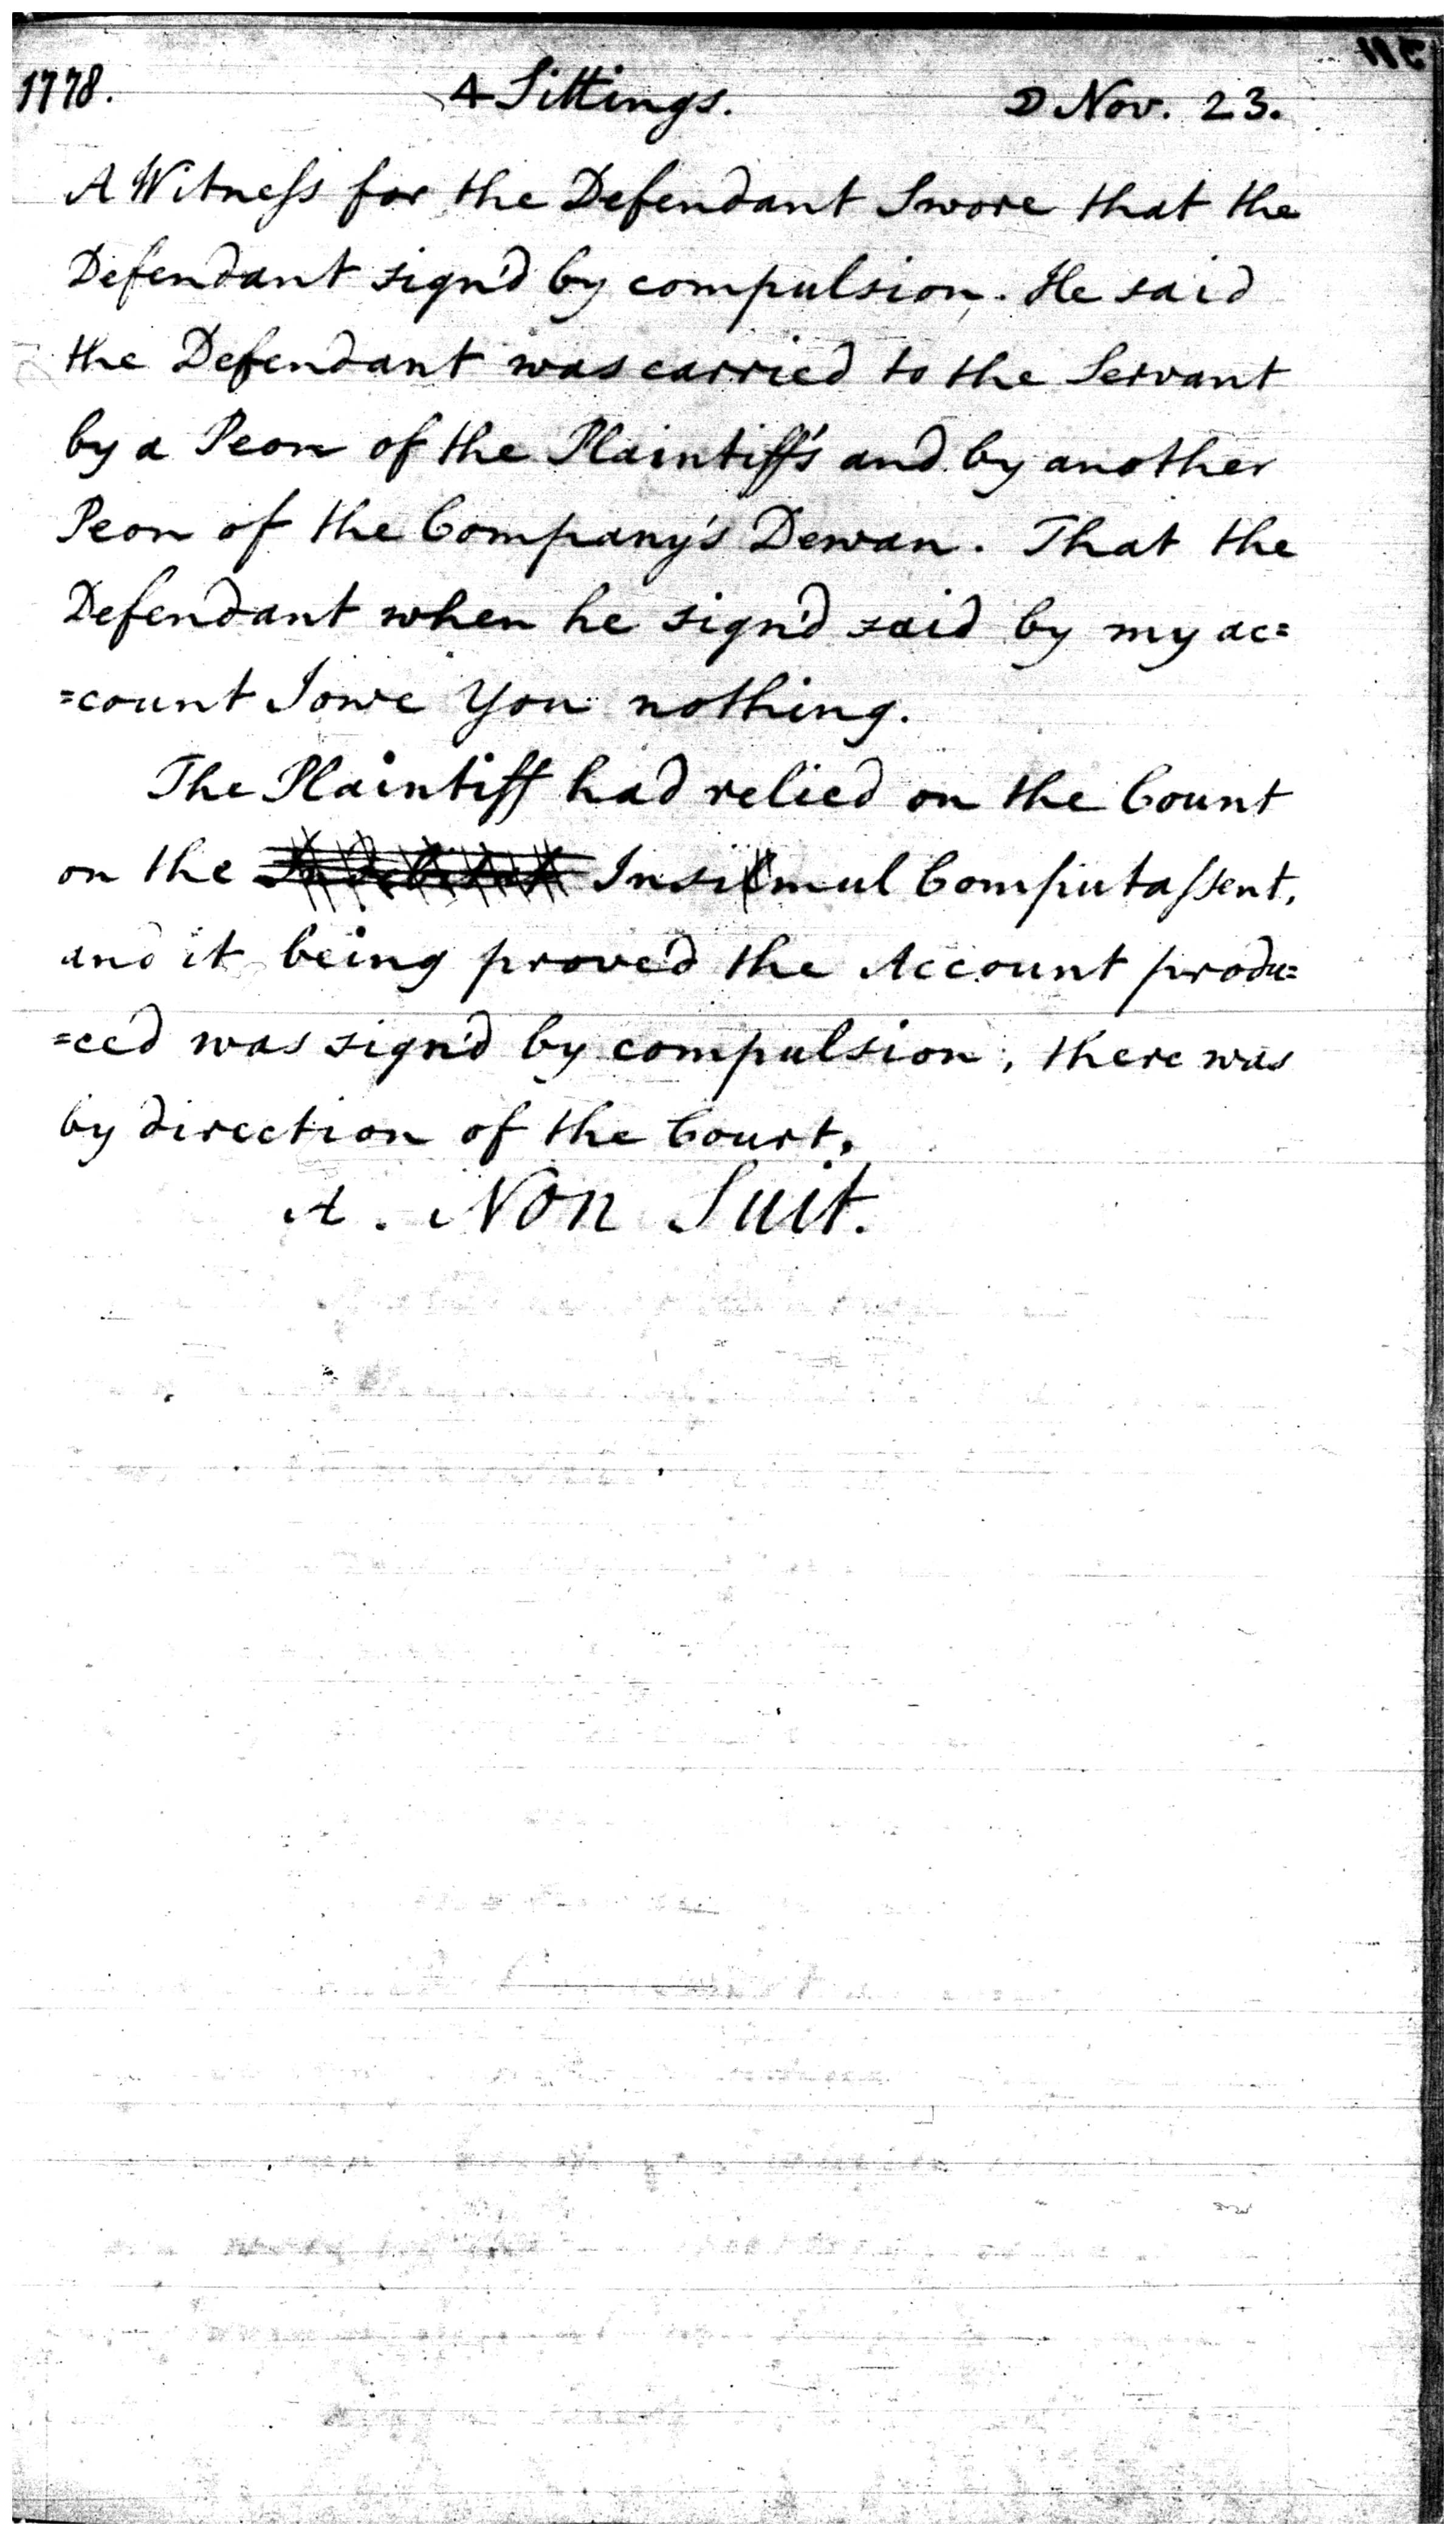 1778. 4 Sittings. ☽ Nov. 23.
A Witneſs for the Defendant Swore that the
Defendant sign'd by compulsion. He said
the Defendant was carried to the Servant
by a Peon of the Plaintiff's and by another
Peon of the Company's Dewan. That the
Defendant when he sign'd said by my ac=
=count I owe You nothing.
The Plaintiff had relied on the Count
on the Insimul Computaſsent,
and it being prove'd the Account produ=
=ced was sign'd by compulsion, there was
by direction of the Court,
A. Non Suit.